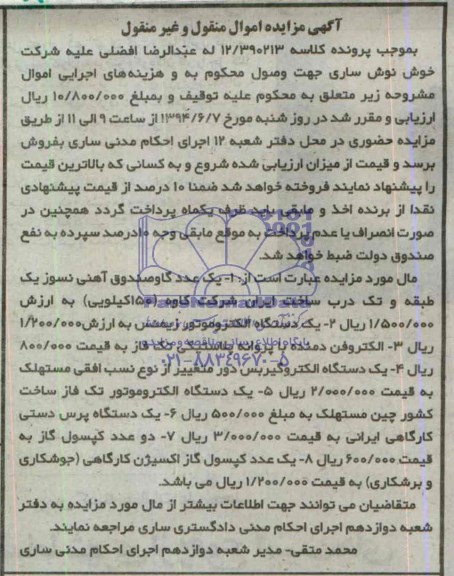 آگهی مزایده اموال منقول و غیر منقول
بموجب پرونده کلاسه ۱۲/۳۹۰۲۱۳ له عبدالرضا افضلی علیه شرکت
خوش نوش ساری جهت وصول محکوم به و هزینه‌های اجرایی اموال
مشروحه زیر متعلق به محکوم علیه توقیف و بمبلغ ۱۰/۸۰۰/۰۰۰ ریال
ارزیابی و مقرر شد در روز شنبه مورخ ۱۳۹۴/۶/۷ از ساعت ۹ الی ۱۱ از طریق
مزایده حضوری در محل دفتر شعبه ۱۲ اجرای احکام مدنی ساری بفروش
برسد و قیمت از میزان ارزیابی شده شروع و به کسانی که بالاترین قیمت
را پیشنهاد نمایند فروخته خواهد شد ضمنا ۱۰ درصد از قیمت پیشنهادی
نقدا از برنده اخذ و مابقی باید ظرف یکماه پرداخت گردد همچنین در
صورت انصراف یا عدم پرداخت به موقع مابقی وجه ۱۰درصد سپرده به نفع
صندوق دولت ضبط خواهد شد.
مال مورد مزایده عبارت است از: ۱- یک عدد گاوصندوق آهنی نسوز یک
طبقه و تک درب ساخت ایران شرکت کاوه (۱۵۰کیلویی) به ارزش
۱/۵۰۰/۰۰۰ ریال ۲- یک دستگاه الکتروموتور زیمنس به ارزش۱/۲۰۰/۰۰۰
ریال ۳- الکتروفن دمنده با پروانه پلاستیکی تک فاز به قیمت ۸۰۰/۰۰۰
ریال ۴- یک دستگاه الکتروگیربس دور متغییر از نوع نسب افقی مستهلک
به قیمت ۲/۰۰۰/۰۰۰ ریال ۵- یک دستگاه الکتروموتور تک فاز ساخت
کشور چین مستهلک به مبلغ ۵۰۰/۰۰۰ ریال ۶- یک دستگاه پرس دستی
کارگاهی ایرانی به قیمت ۳/۰۰۰/۰۰۰ ریال ۷- دو عدد کپسول گاز به
قیمت ۶۰۰/۰۰۰ ریال ۸- یک عدد کپسول گاز اکسیژن کارگاهی (جوشکاری
و برشکاری) به قیمت ۱/۲۰۰/۰۰۰ ریال می باشد.
متقاضیان می توانند جهت اطلاعات بیشتر از مال مورد مزایده به دفتر
شعبه دوازدهم اجرای احکام مدنی دادگستری ساری مراجعه نمایند.
محمد متقی- مدیر شعبه دوازدهم اجرای احکام مدنی ساری
۰۲۱-۸۸۳۴۹۶۷۰-۵